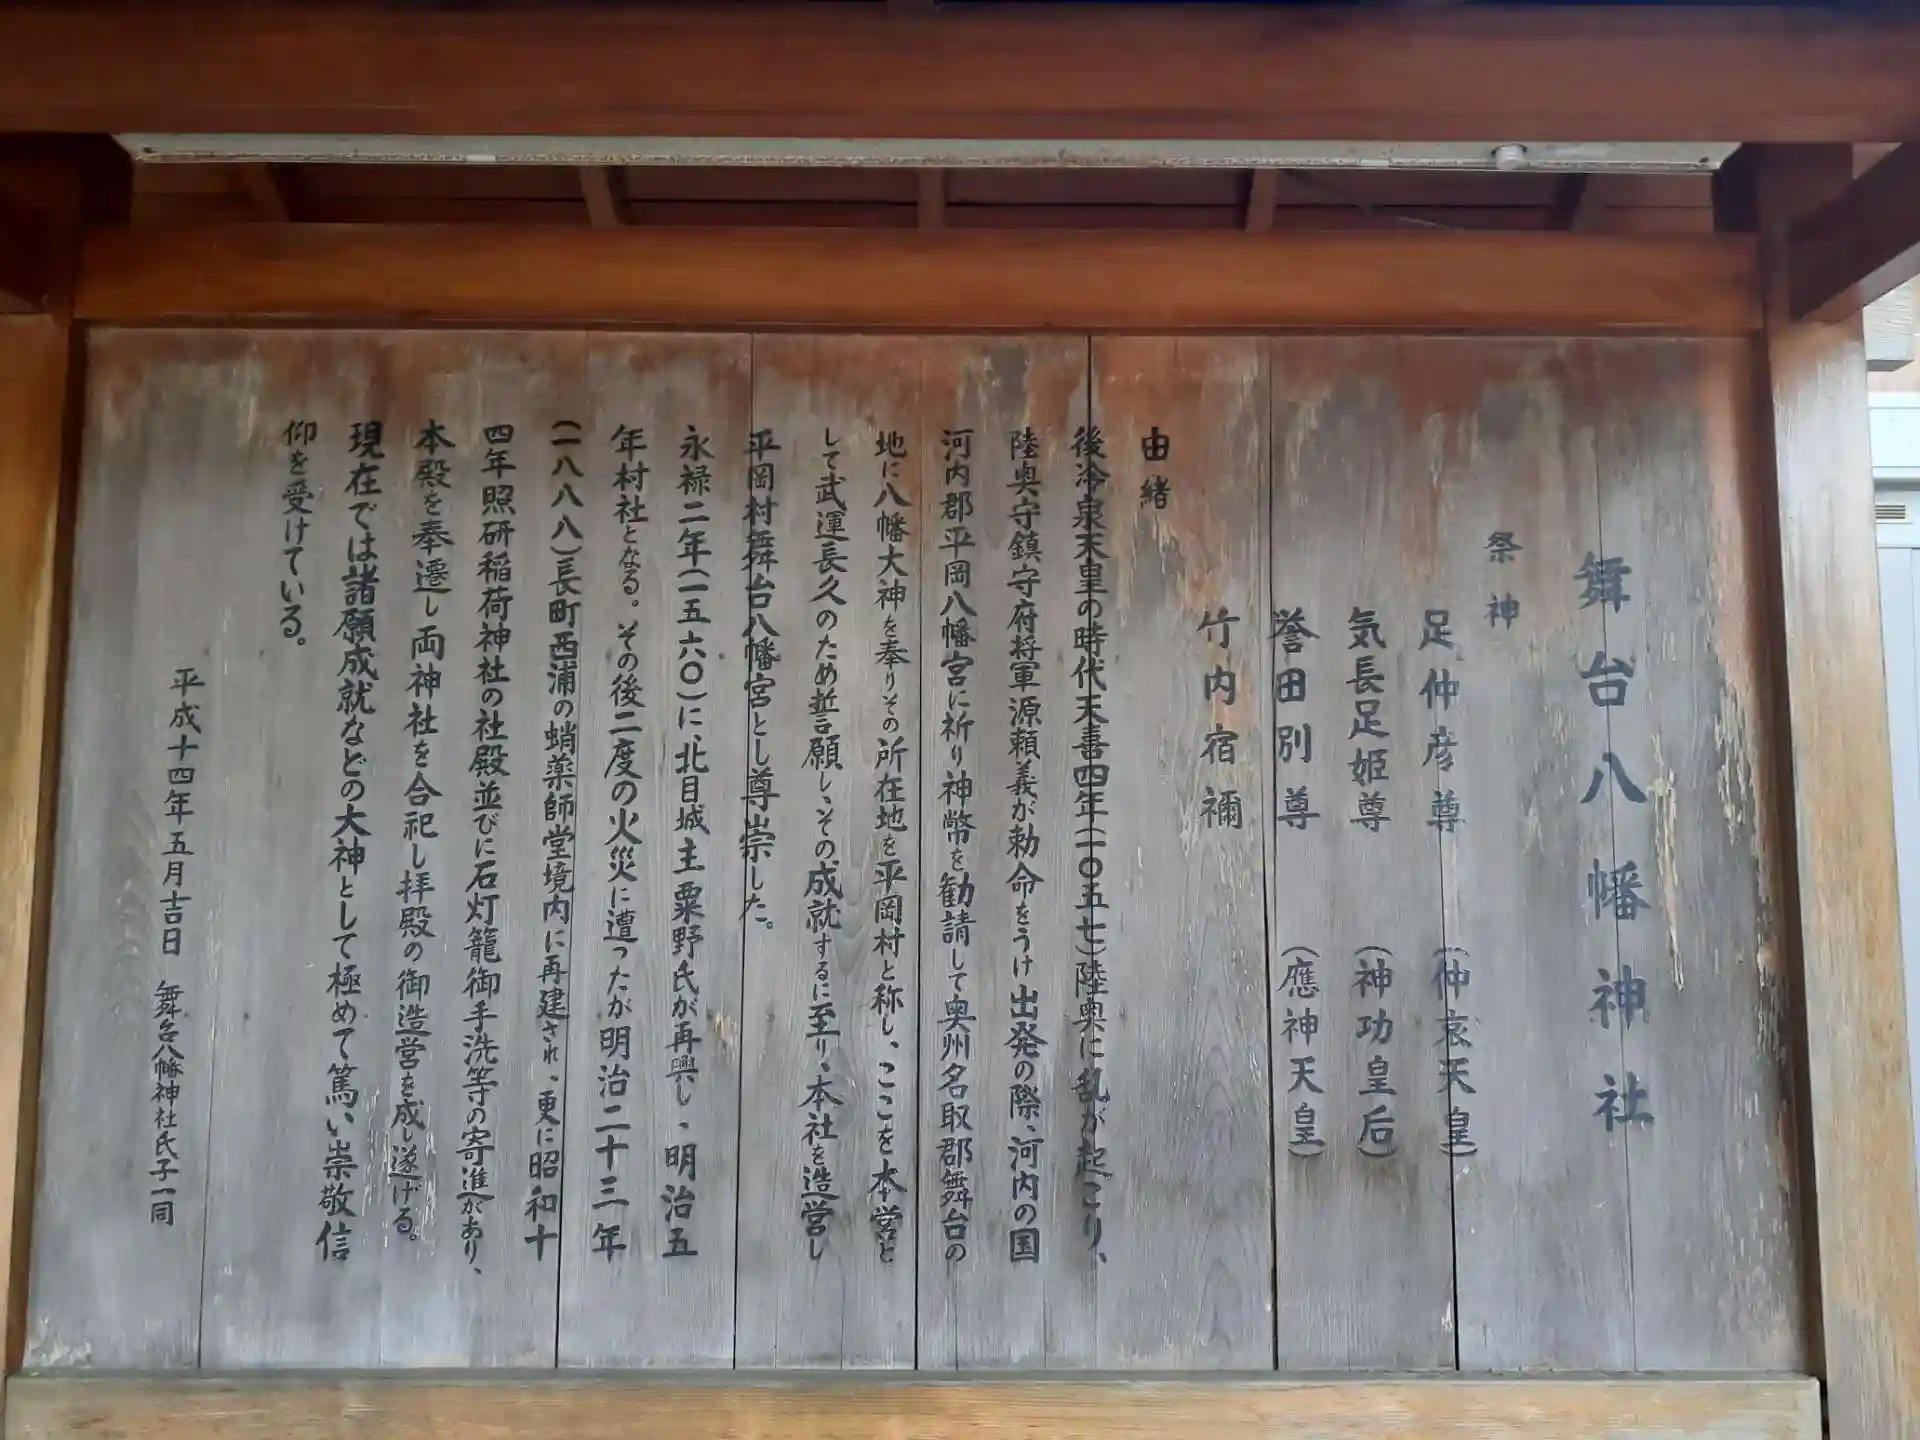 舞台八幡神社
祭神
足仲彦尊 (仲哀天皇)
気長足姫尊 (神功皇后)
誉田別尊 (應神天皇)
竹内宿禰
由緒
後冷泉天皇の時代天喜四年(一〇五七)陸奥に乱が起こり、
陸奥守鎮守府将軍源頼義が勅命をうけ出発の際、河内の国
河内郡平岡八幡宮に祈り神幣を勧請して奥州名取郡舞台の
地に八幡大神を奉りその所在地を平岡村と称し、ここを本営と
して武運長久のため誓願し、その成就するに至り、本社を造営し
平岡村舞台八幡宮とし尊崇した。
永禄二年(一五六〇)に、北目城主粟野氏が再興し、明治五
年村社となる。その後二度の火災に遭ったが明治二十三年
(一八八八)長町西浦の蛸薬師堂境内に再建され、更に昭和十
四年照研稲荷神社の社殿並びに石灯籠御手洗等の寄進があり、
本殿を奉遷し両神社を合祀し拝殿の御造営を成し遂げる。
現在では諸願成就などの大神として極めて篤い崇敬信
仰を受けている。
平成十四年五月吉日 舞台八幡神社氏子一同